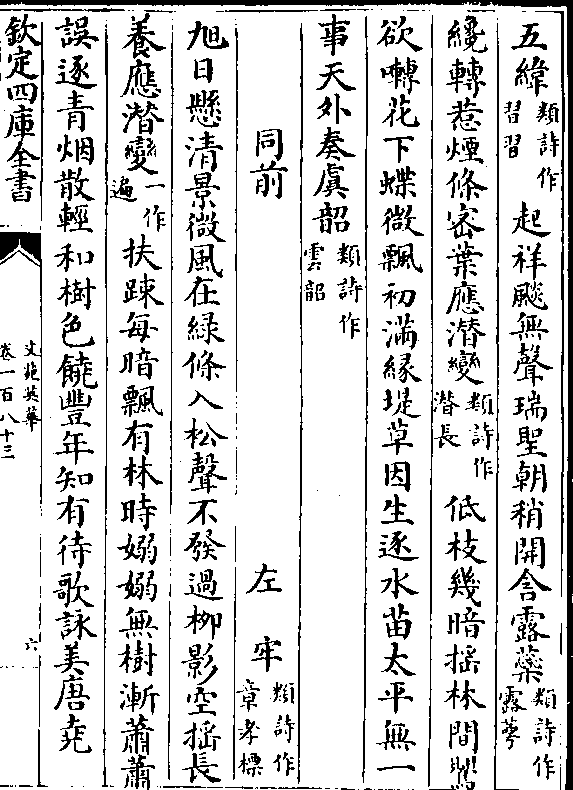 五緯類詩作習習起祥飈無聲瑞聖朝稍開含露蘂類詩作露萼
纔轉惹煙條密葉應潛變類詩作潛長低枝幾暗揺林間
欲囀花下蝶微飄初滿緣堤草因生逐水苗太平無一
事天外奏虞韶類詩作雲韶
同前 左牢類詩作章孝標
旭日懸清景微風在緑條入松聲不發過柳影空揺長
養應潛變一作遍扶踈每暗飄有林時嫋嫋無樹漸蕭蕭
誤逐青烟散輕和樹色饒豐年知有待歌詠美唐堯
欽定四庫全書
文苑英華
卷一百八十三
六